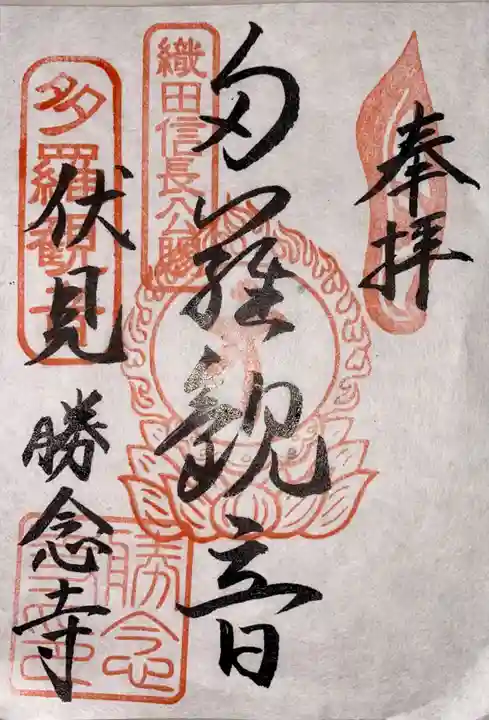 奉拝
多羅観音
織田信長公賜
伏見 勝念寺
多羅観音
勝念